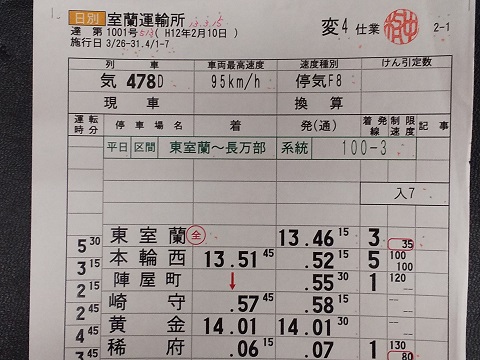 日別 室蘭運輸所 12.3.15 変4 仕業 2-1
達 第 1001号 ( H12年2月10日 )
施行日 3/26-31.4/1-7
列車 車両最高速度 速度種別 けん引定数
気 478D 95km/h 停気F8
現車 換算
運転時分 停車場名 着 発(通) 着発線 制限速度 記事
平日 区間 東室蘭～長万部 系統 100-3
入7
東室蘭 全 13.46 15 3 35
5 30 本輪西 13.51 45 .52 15 5 100 100
3 15 陣屋町 ↓ .55 30 1 120
2 15 崎守 .57 45 .58 15
2 45 黄金 14.01 14.01 30
4 45 稀府 .06 15 .07 1 130 80